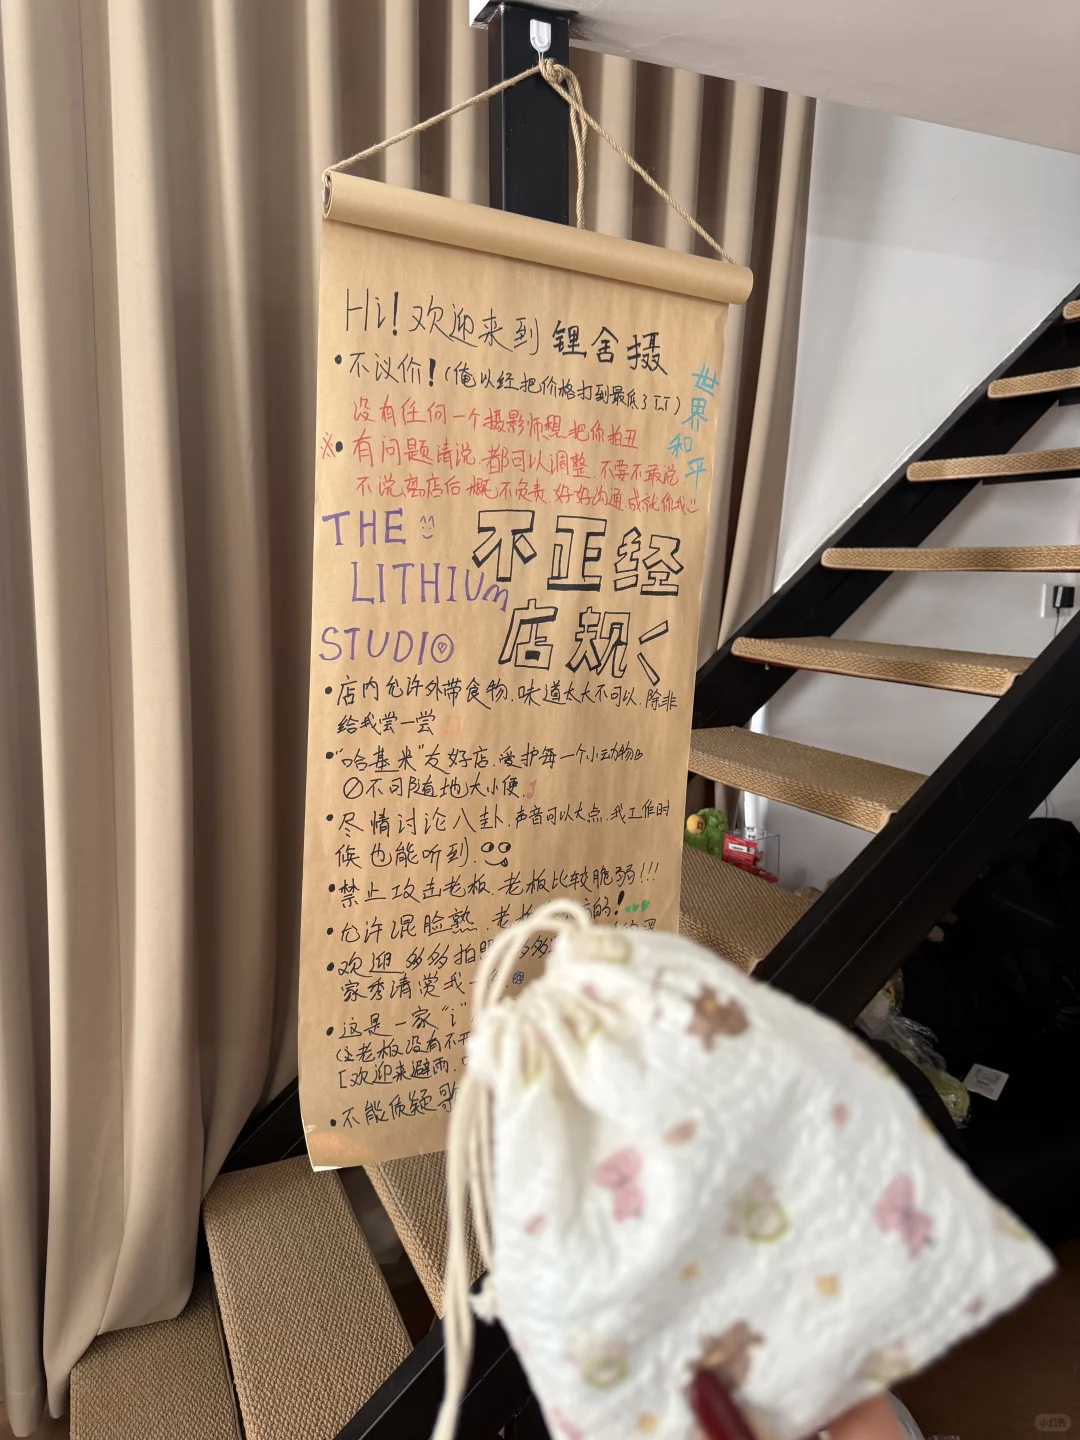 Hi!欢迎来到锂舍摄
•不议价!(俺以经把价格打到最低了T.T)
没有任何一个摄影师想把你拍丑
※•有问题请说.都可以调整.不要不敢说.
不说离店后概不负责.好好沟通.成就你我
世界和平
THE
LITHIUM
STUDIO
不正经
店规
•店内允许外带食物.味道太大不可以.除非
给我尝一尝
•"哈基米"友好店.爱护每一个小动物
不可随地大小便.
•尽情讨论八卦.声音可以大点.我工作时
候也能听到.
•禁止攻击老板.老板比较脆弱!!!
•允许混脸熟.老板 的!
•欢迎多多拍照 多多
家秀请赏我一
•这是一家"i"
(注老板没有不开
[欢迎来避雨.
•不能质疑歌